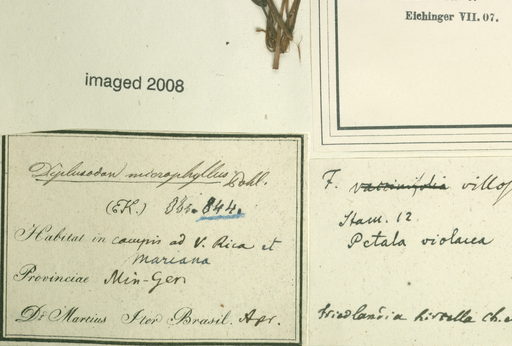 Eichinger VII. 07.
imaged 2008
Diplusodon microphyllus Pohl.
844.
Habitat in campis ad V. Rica et
Mariana
Provinciae Min-Ger
Dr Martius Iter Brasil. Apr.
F. vaccinifolia villos
Stam. 12.
Petala violacea
Friedlandia hirtella Ch.